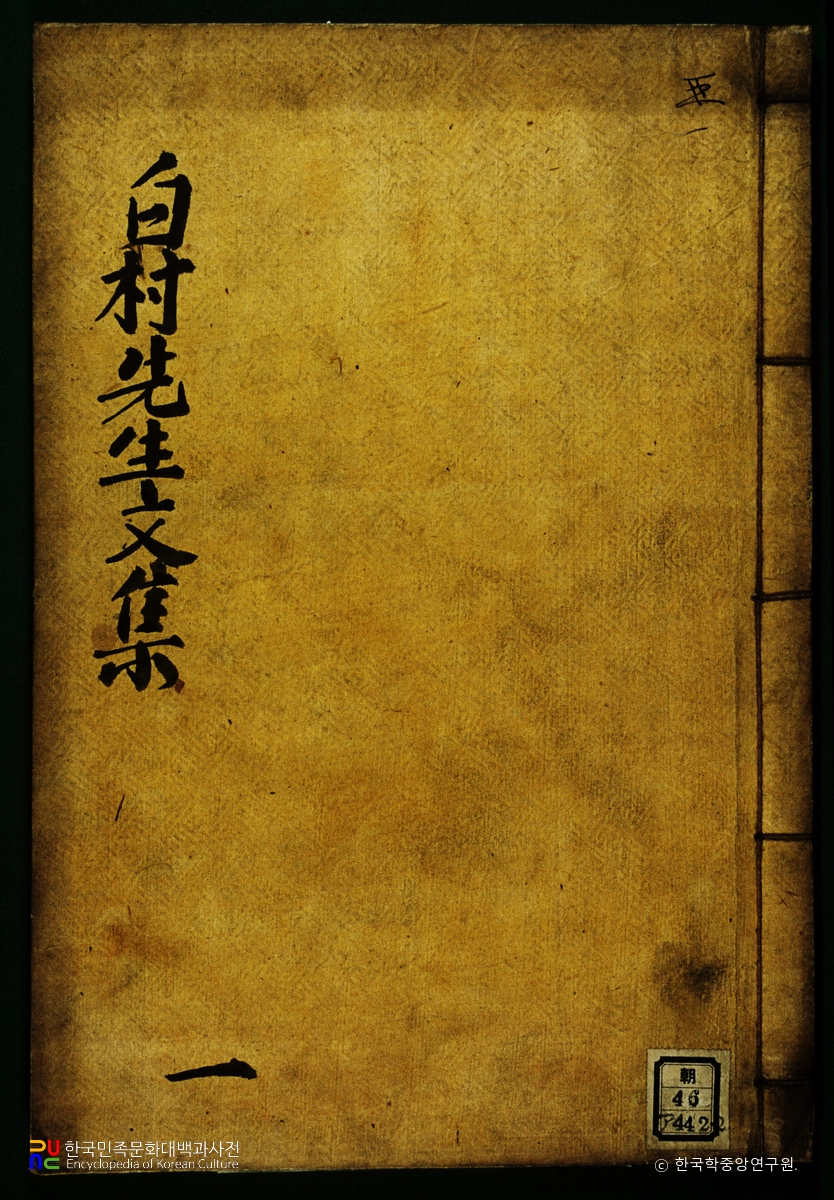 白村先生文集
一
朝
46
한국민족문화대백과사전
Encyclopedia of Korean Culture
ⓒ 한국학중앙연구원.